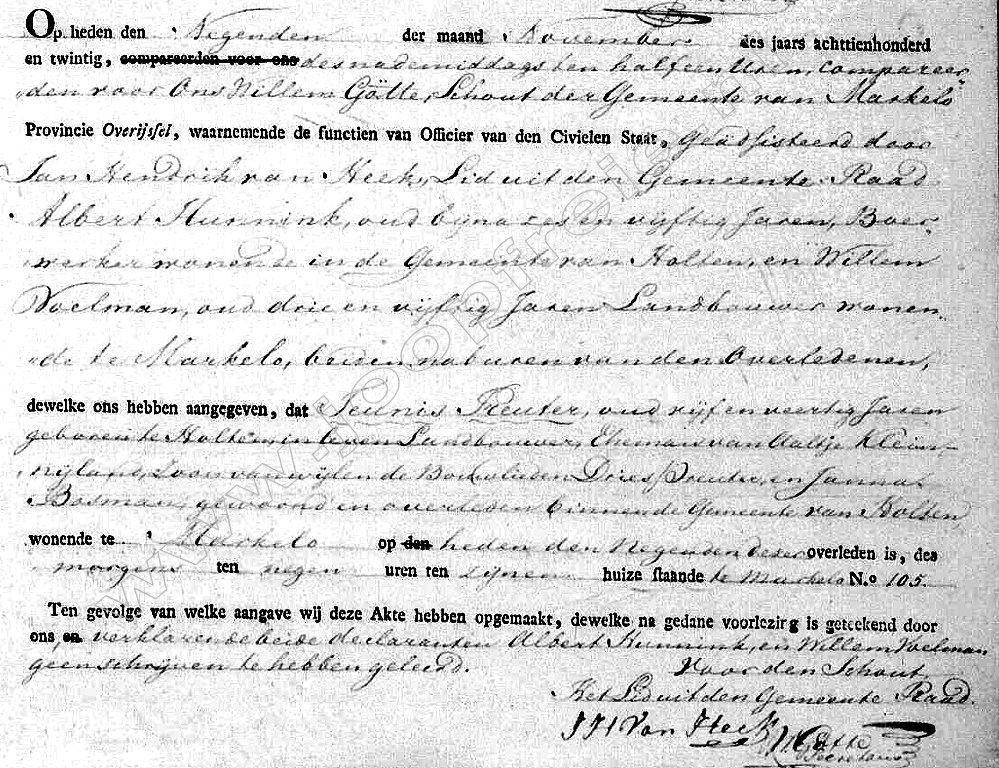 Op heden den Negenden der maand November des jaars achttienhonderd
en twintig, compareerden voor ons des nademiddags ten half een Uren, compareer-
den voor Ons Willem Götte, Schout der Gemeente van Markelo
Provincie Overijssel, waarnemende de functien van Officier van den Civielen Staat, Geadsisteerd door
Jan Hendrik van Heek, Lid uit den Gemeente Raad
Albert Hunnink, oud bijna zes en vijftig Jaren, Boer-
werker wonende in de Gemeente van Holten, en Willem
Voelman, oud drie en vijftig Jaren Landbouwer wonen-
de te Markelo, beiden naburen van den Overledenen,
dewelke ons hebben aangegeven, dat Teunis Reuter, oud vijf en veertig Jaren
geboren te Holten, in leven Landbouwer, Eheman van Aaltje Klein-
nijland, Zoon van wijlen de Boerelieden Dries Reuter, en Janna
Bosman, gewoond en overleden binnen de Gemeente van Holten
wonende te Markelo op den heden den Negenden dezer overleden is, des
morgens ten negen uren ten zijnen huize staande te Markelo N.o 105.
Ten gevolge van welke aangave wij deze Akte hebben opgemaakt, dewelke na gedane voorlezing is geteekend door
ons, en verklarende beide declaranten Albert Hunnink, en Willem Voelman
geen schrijven te hebben geleerd.
Voor den Schout
Het Lid uit den Gemeente Raad.
J H Van Heek
Götte
Secretaris
www.hopfreiter